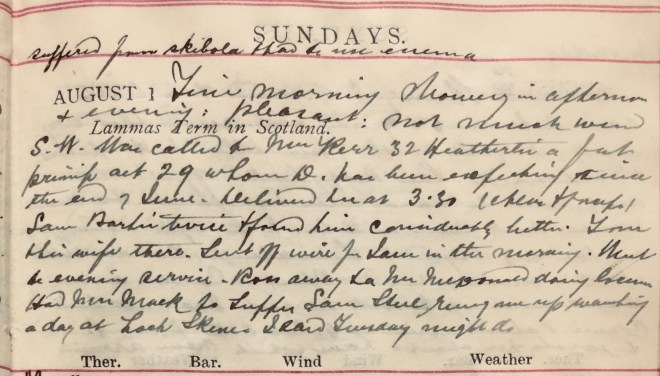 SUNDAYS.
suffered from skibola & had to use enema
AUGUST 1 Fine morning Showery in afternoon
& evening; pleasant; not much wind
Lammas Term in Scotland.
S.W. Was called to Mrs Kerr 32 a fat
primip aet 29 whom D. has been expecting since
the end of June. Delivered her at 3.30 (chlor & forceps)
Sam twice & found him considerably better. Tom
& his wife there. Sent off wire for Sam in the morning. Went
to evening service. Ross away to doing locum
Had Mrs Mack to supper Sam rung me up wanting
a day at Loch Skene I said Tuesday might do
Ther. Bar. Wind Weather